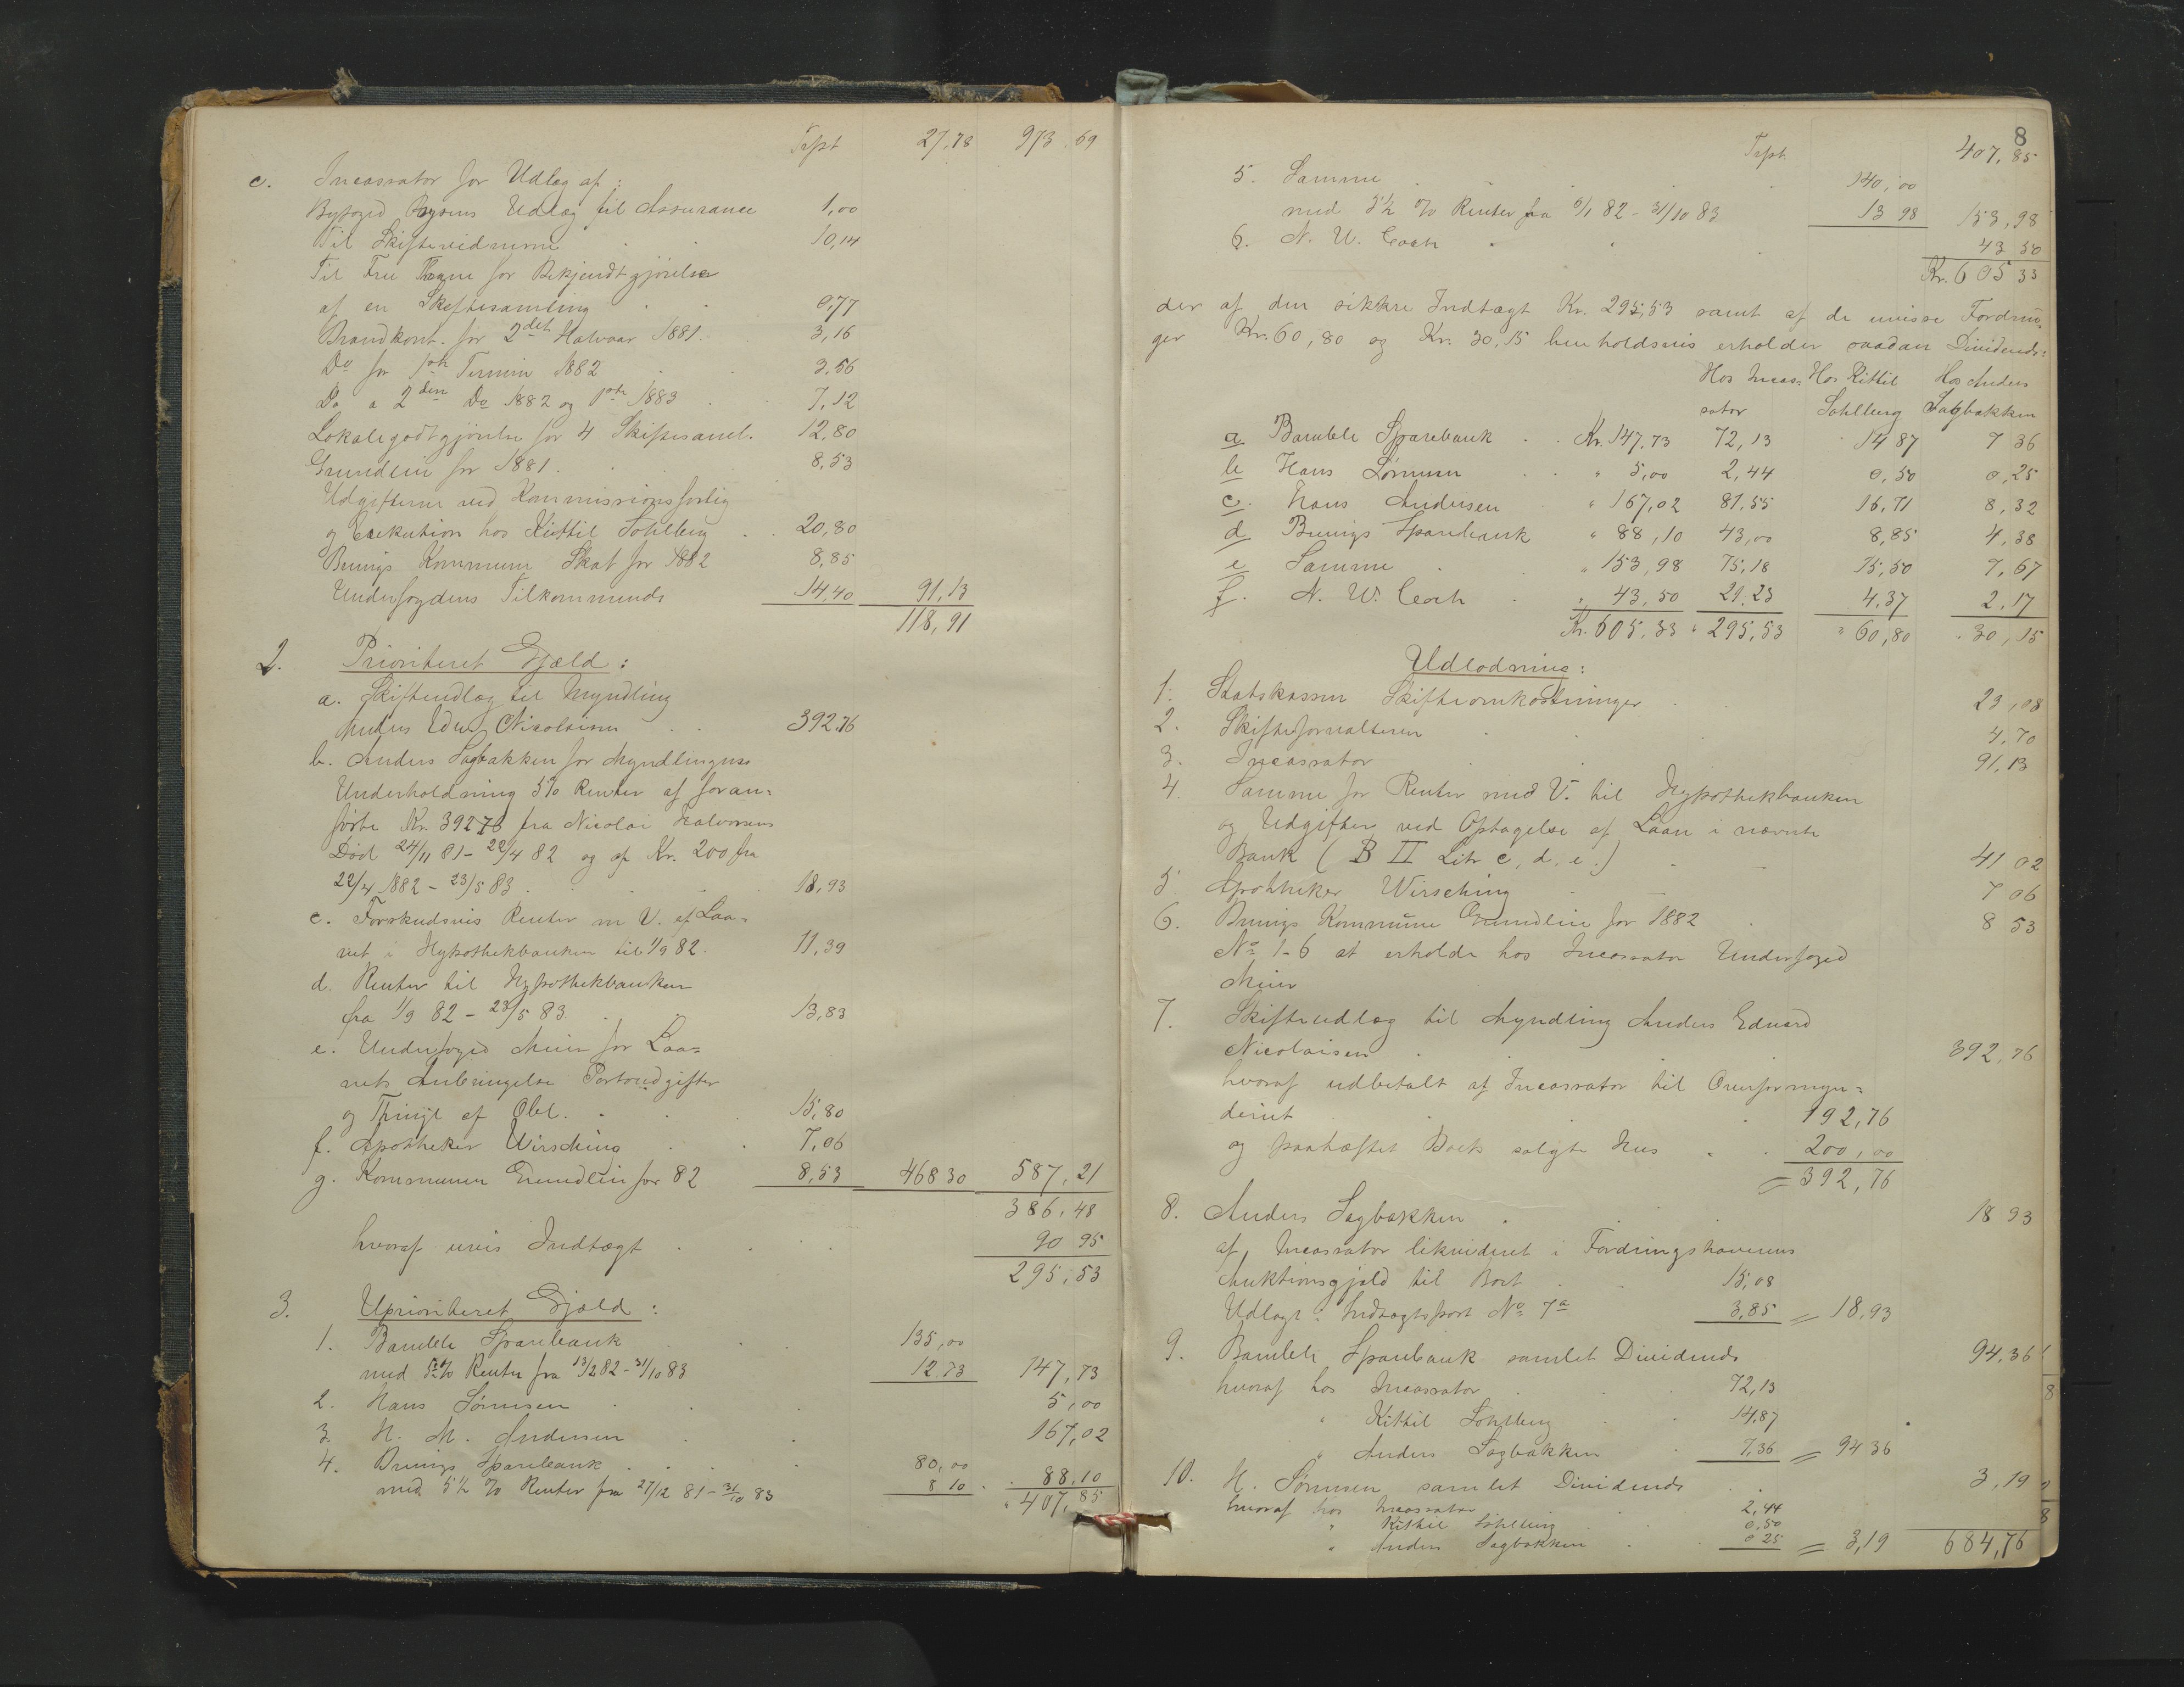 Trpt 27,78 973,69
c. Incassator for Udlæg af:
Byfoged Udlæg til Assurance 1,00
Til Skiftevidnerne 10,14
Til Fru for Bekjendtgjørelse
af en Skiftesamling 0,77
Brandkont. for 2det Halvaar 1881. 3,16
Do for 1ste Termin 1882 3,56
Do " 2den Do 1882 og 1ste 1883 7,12
Lokalegodtgjørelse for 4 Skiftesaml. 12,80
Grundleie for 1881. 8,53
Udgifterne ved Kommissionsforlig
og Exekution hos Kittil Sohlberg 20,80
Brevigs Kommune Skat for 1882 8,85
Underfogdens Tilkommende 14,40 91,13
118,91
2. Prioriteret Gjæld:
a. Skifteudlæg til Myndling
Anders Edv. Nicolaisen 392,76
b. Anders Sagbakken for Myndlingens
Underholdning 5% Renter af foran-
førte Kr. 392,76 fra Nicolai Halvorsens
Død 24/11 81 - 22/4 82 og af Kr. 200 fra
22/4 1882 - 23/5 83. 18,93
c. Forskudsvis Renter m V. af Laa-
net i Hypothekbanken til 1/9 82. 11,39
d. Renter til Hypothekbanken
fra 1/9 82 - 23/5 83. 13,83
e. Underfoged Meier for Laa-
nets Anbringelse Portoudgifter
og Thingl. af Obl. 15,80
f. Apotheker Wirsching 7,06
g. Kommunen Grundleie for 82 8,53 468 30 587,21
386,48
hvoraf uvis Indtægt 90 95
295,53
3. Uprioriteret Gjæld:
1. Bamble Sparebank 135,00
med % Renter fra 13/2 82 - 31/10 83 12,73 147,73
2. Hans Sørensen 5,00
3. H. M. Andersen 167,02
4. Brevigs Sparebank 80,00
med 5½ % Renter fra 27/12 81 - 31/10 83 8 10 88,10
" 407,85
8
Trpt. 407,85
5. Samme 140,00
med 5½ % Renter fra 6/1 82 - 31/10 83 13 98 153,98
6. N. W. Coch 43 50
Kr. 605 33
der af den sikkre Indtægt Kr. 295,53 samt af de uvisse Fordrin-
ger Kr. 60,80 og Kr. 30,15 henholdsvis erholder saadan Dividende:
Hos Incas- Hos Kittil Hos Anders
sator Sohlberg Sagbakken
a Bamble Sparebank Kr. 147,73 72,13 14 87 7 36
b Hans Sørensen " 5,00 2,44 0,50 0,25
c. Hans Andersen " 167,02 81,55 16,71 8,32
d Brevigs Sparebank " 88,10 43,00 8,85 4,38
e Samme " 153,98 75,18 15,50 7,67
f. N. W. Coch " 43,50 21,23 4,37 2,17
Kr. 605,33 " 295,53 " 60,80 " 30,15
Udlodning:
1. Statskassen Skifteomkostninger 23,08
2. Skifteforvalteren 4,70
3. Incassator 91,13
4. Samme for Renter med V. til Hypothekbanken
og Udgifter ved Optagelse af Laan i nævnte
Bank (B II Litr c, d, e.) 41 02
5. Apotheker Wirsching 7 06
6. Brevigs Kommune Grundleie for 1882 8 53
No 1-6 at erholde hos Incassator Underfoged
Meier
7. Skifteudlæg til Myndling Anders Edvard
Nicolaisen 392,76
hvoraf udbetalt af Incassator til Overformyn-
deriet 192,76
og paahæftet Boets solgte Hus 200,00
= 392,76
8. Anders Sagbakken 18 93
af Incassator likvideret i Fordringshaverens
Auktionsgjæld til Boet 15,08
Udlagt i Indtægtspost No 7a 3,85 = 18,93
9. Bamble Sparebank samlet Dividende 94,36
hvoraf hos Incassator 72,13
" Kittil Sohlberg 14,87
" Anders Sagbakken 7,36 = 94 36
10. H. Sørensen samlet Dividende 3,19
hvoraf hos Incassator 2,44
" Kittil Sohlberg 0,50
" Anders Sagbakken 0 25 = 3,19 684,76